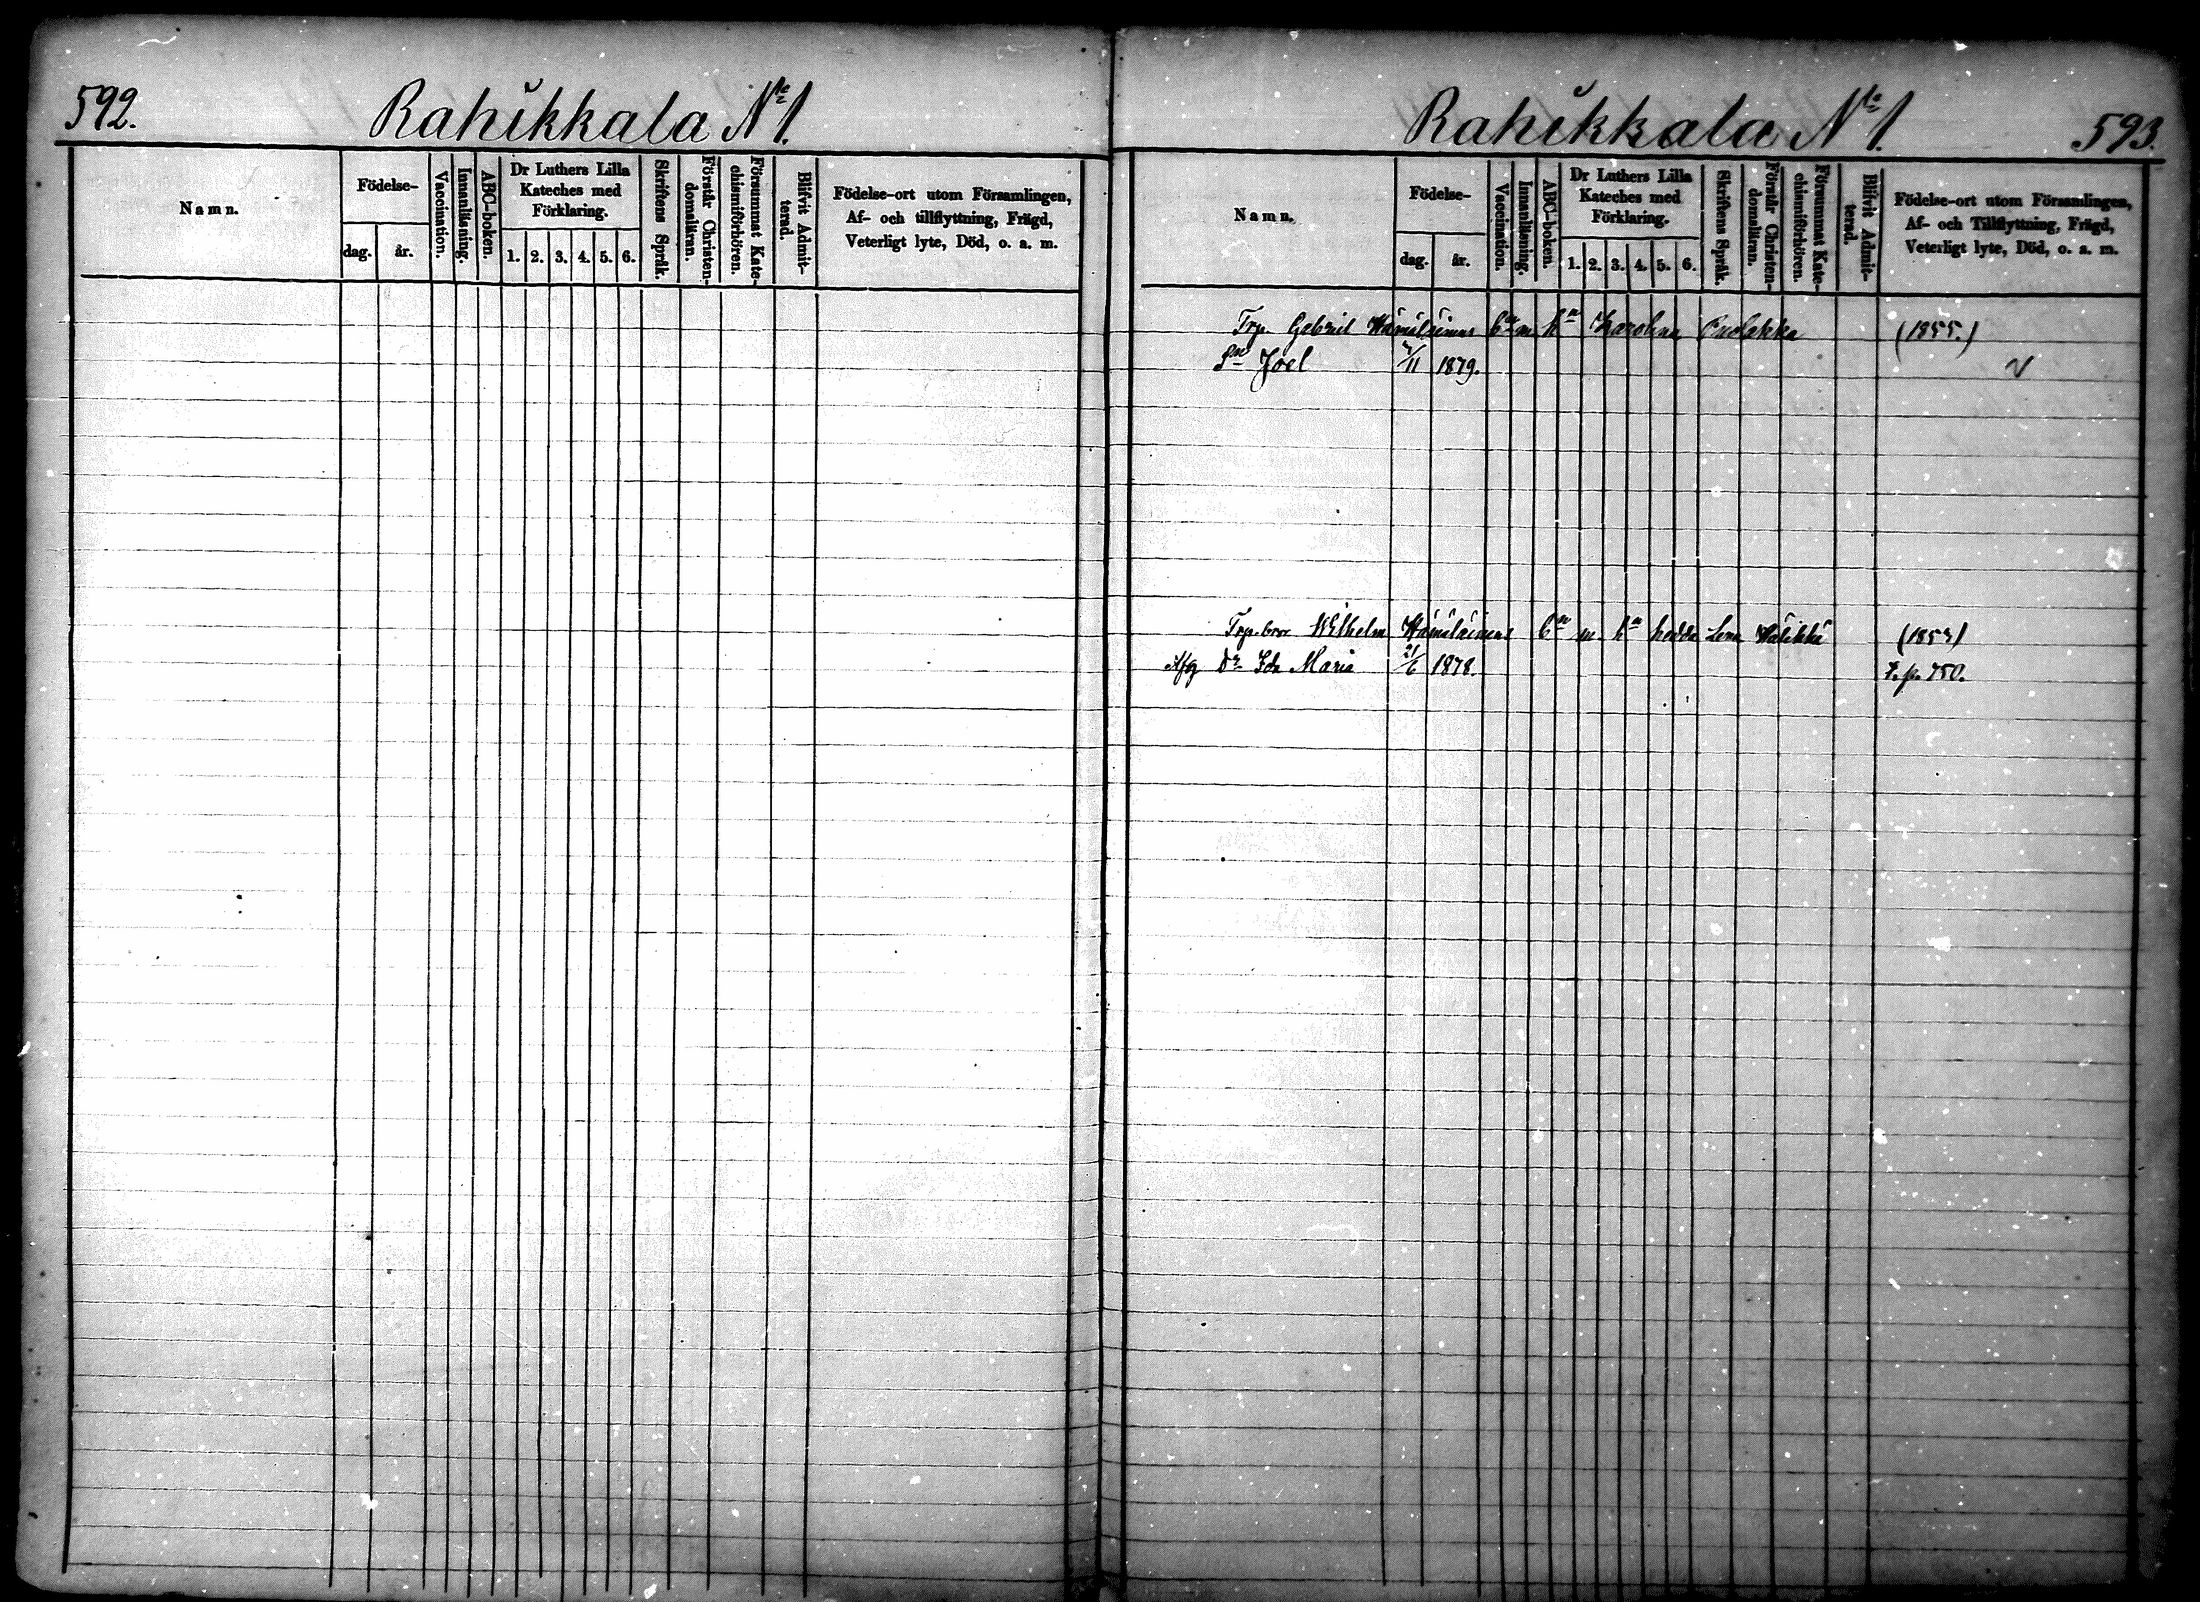 592.
Rahikkala No 1.
Namn.
Födelse-
dag.
år.
Vaccination.
Innanläsning.
ABC-boken.
Dr Luthers Lilla
Kateches med
Förklaring.
1. 2. 3. 4. 5. 6.
Skriftens Språk.
Förstår Christen-
domsläran.
Försummat Kate-
chismiförhören.
Blifvit Admit-
terad.
Födelse-ort utom Församlingen,
Af- och tillflyttning, Frägd,
Veterligt lyte, Död, o. a. m.
Rahikkala No 1.
593.
Namn.
Födelse-
dag.
år.
Vaccination.
Innanläsning.
ABC-boken.
Dr Luthers Lilla
Kateches med
Förklaring.
1. 2. 3. 4. 5. 6.
Skriftens Språk.
Förstår Christen-
domsläran.
Försummat Kate-
chismiförhören.
Blifvit Admit-
terad.
Födelse-ort utom Församlingen,
Af- och Tillflyttning, Frägd,
Veterligt lyte, Död, o. a. m.
Trp. Gabriel Hämäläinens m. Karolina (1855.)
Sn Joel /11 1879.
Trp. bror Wilhelm Hämäläinens m. hedda Lena
Afg Dr Ida Maria 21/6 1878. t. p. 750.